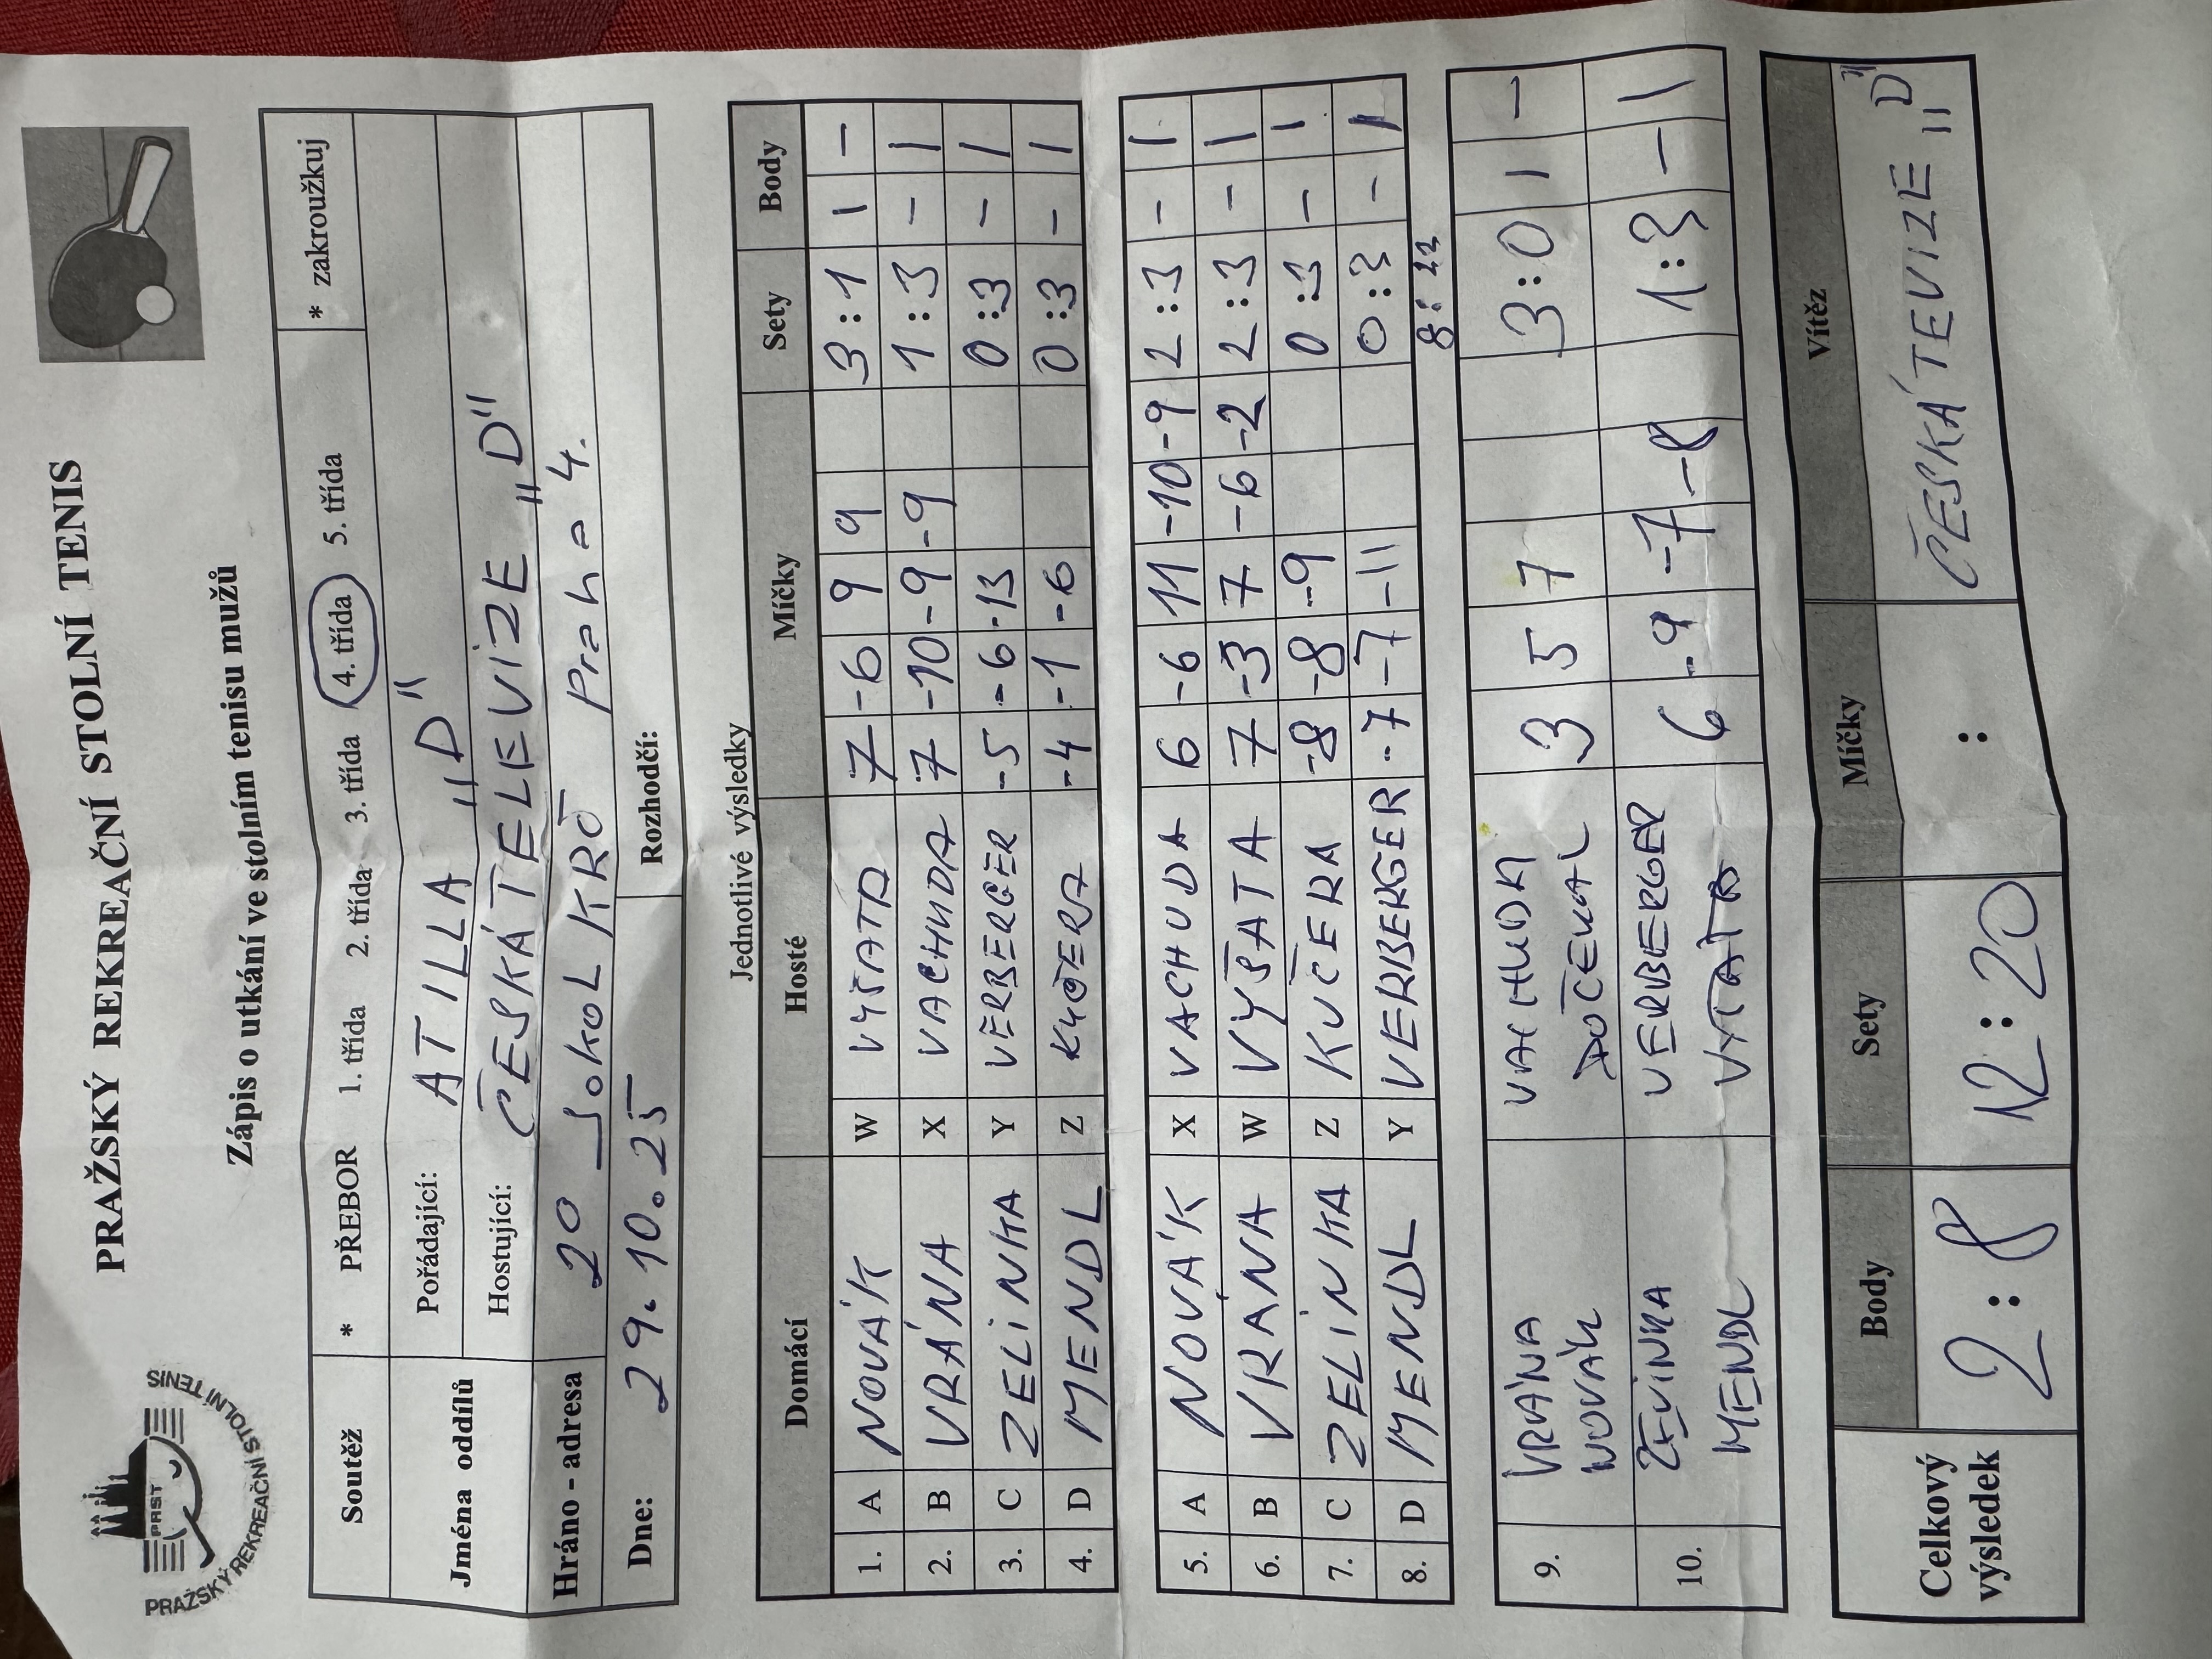 PRAŽSKÝ REKREAČNÍ STOLNÍ TENIS
PRST
PRAŽSKÝ REKREAČNÍ STOLNÍ TENIS
Zápis o utkání ve stolním tenisu mužů
Soutěž * PŘEBOR 1. třída 2. třída 3. třída 4. třída 5. třída * zakroužkuj
Jména oddílů
Pořádající: ATILLA "D"
Hostující: ČESKÁ TELEVIZE "D"
Hráno - adresa 20 Sokol KRČ Praha 4.
Dne: 29.10.25 Rozhodčí:
Jednotlivé výsledky
Domácí Hosté Míčky Sety Body
1. A NOVÁK W VYŠATA 7 -6 9 9 3:1 1 -
2. B VRÁNA X VACHUDA 7 -10 -9 -9 1:3 - 1
3. C ZELINKA Y VERBERGER -5 -6 -13 0:3 - 1
4. D MENDL Z KUČERA -4 -1 -6 0:3 - 1
5. A NOVÁK X VACHUDA 6 -6 11 -10 -9 2:3 - 1
6. B VRÁNA W VYŠATA 7 -3 7 -6 -2 2:3 - 1
7. C ZELINKA Z KUČERA -8 -8 -9 0:3 - 1
8. D MENDL Y VERBERGER -7 -7 -11 0:3 - 1
8:22
9. VRÁNA VACHUDA 3 5 7 3:0 1 -
NOVÁK DOČEKAL
10. ZELINKA VERBERGER 6 -9 -7 -8 1:3 - 1
MENDL VYŠATA
Celkový výsledek
Body Sety Míčky Vítěz
2:8 12:20 : ČESKÁ TEVIZE "D"